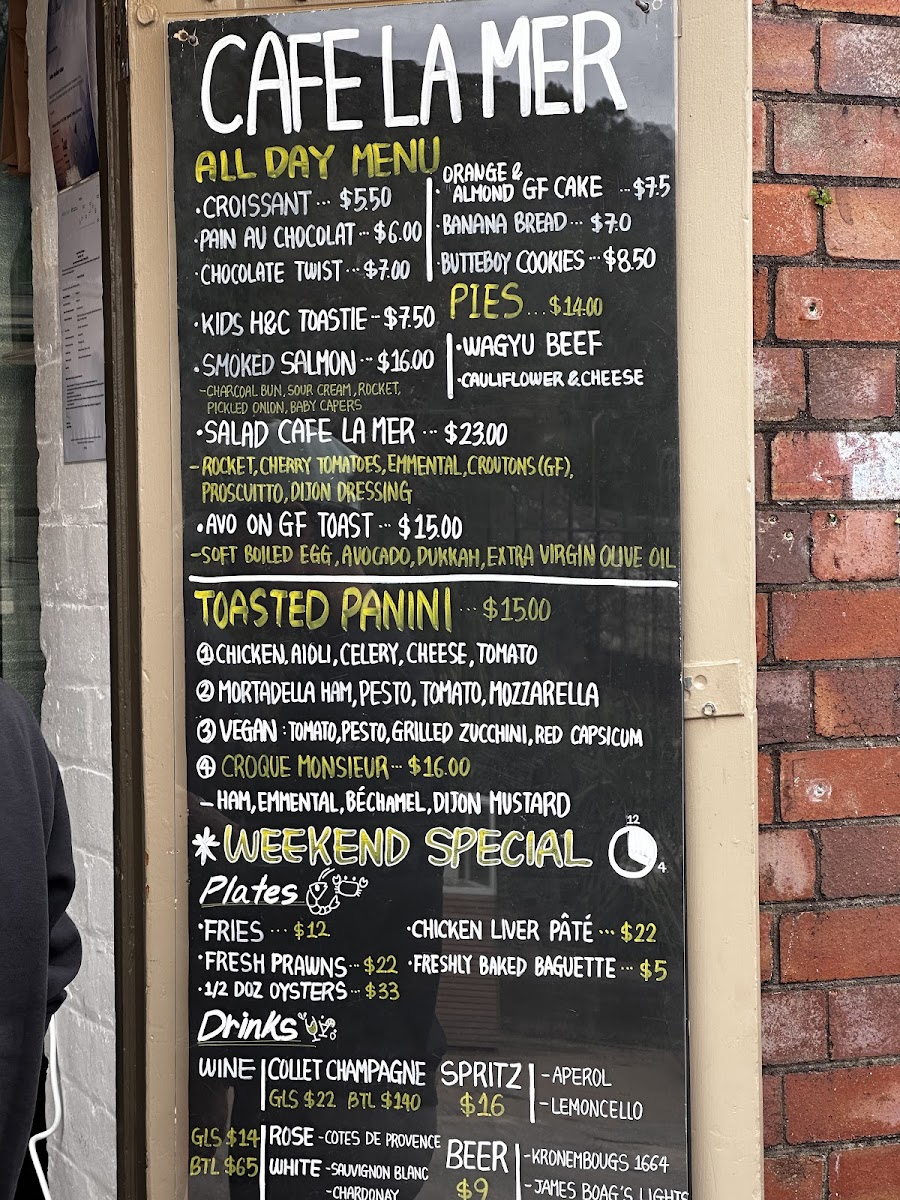 CAFE LA MER
ALL DAY MENU
·CROISSANT ··· $5.50
·PAIN AU CHOCOLAT ··· $6.00
·CHOCOLATE TWIST ··· $7.00
·ORANGE &
ALMOND GF CAKE ··· $7.5
·BANANA BREAD ··· $7.0
·BUTTEBOY COOKIES ··· $8.50
·KIDS H&C TOASTIE - $7.50
·SMOKED SALMON ··· $16.00
-CHARCOAL BUN, SOUR CREAM, ROCKET,
PICKLED ONION, BABY CAPERS
PIES ... $14.00
·WAGYU BEEF
·CAULIFLOWER & CHEESE
·SALAD CAFE LA MER ··· $23.00
-ROCKET, CHERRY TOMATOES, EMMENTAL, CROUTONS (GF),
PROSCUITTO, DIJON DRESSING
·AVO ON GF TOAST ··· $15.00
-SOFT BOILED EGG, AVOCADO, DUKKAH, EXTRA VIRGIN OLIVE OIL
TOASTED PANINI ··· $15.00
① CHICKEN, AIOLI, CELERY, CHEESE, TOMATO
② MORTADELLA HAM, PESTO, TOMATO, MOZZARELLA
③ VEGAN : TOMATO, PESTO, GRILLED ZUCCHINI, RED CAPSICUM
④ CROQUE MONSIEUR ··· $16.00
- HAM, EMMENTAL, BÉCHAMEL, DIJON MUSTARD
* WEEKEND SPECIAL
12
4
Plates
·FRIES ··· $12
·FRESH PRAWNS ··· $22
·1/2 DOZ OYSTERS ··· $33
·CHICKEN LIVER PÂTÉ ··· $22
·FRESHLY BAKED BAGUETTE ··· $5
Drinks
WINE
COLLET CHAMPAGNE
GLS $22 BTL $140
GLS $14
BTL $65
ROSE - COTES DE PROVENCE
WHITE - SAUVIGNON BLANC
- CHARDONAY
SPRITZ
$16
- APEROL
- LEMONCELLO
BEER
$9
- KRONEMBOUGS 1664
- JAMES BOAG'S LIGHTS